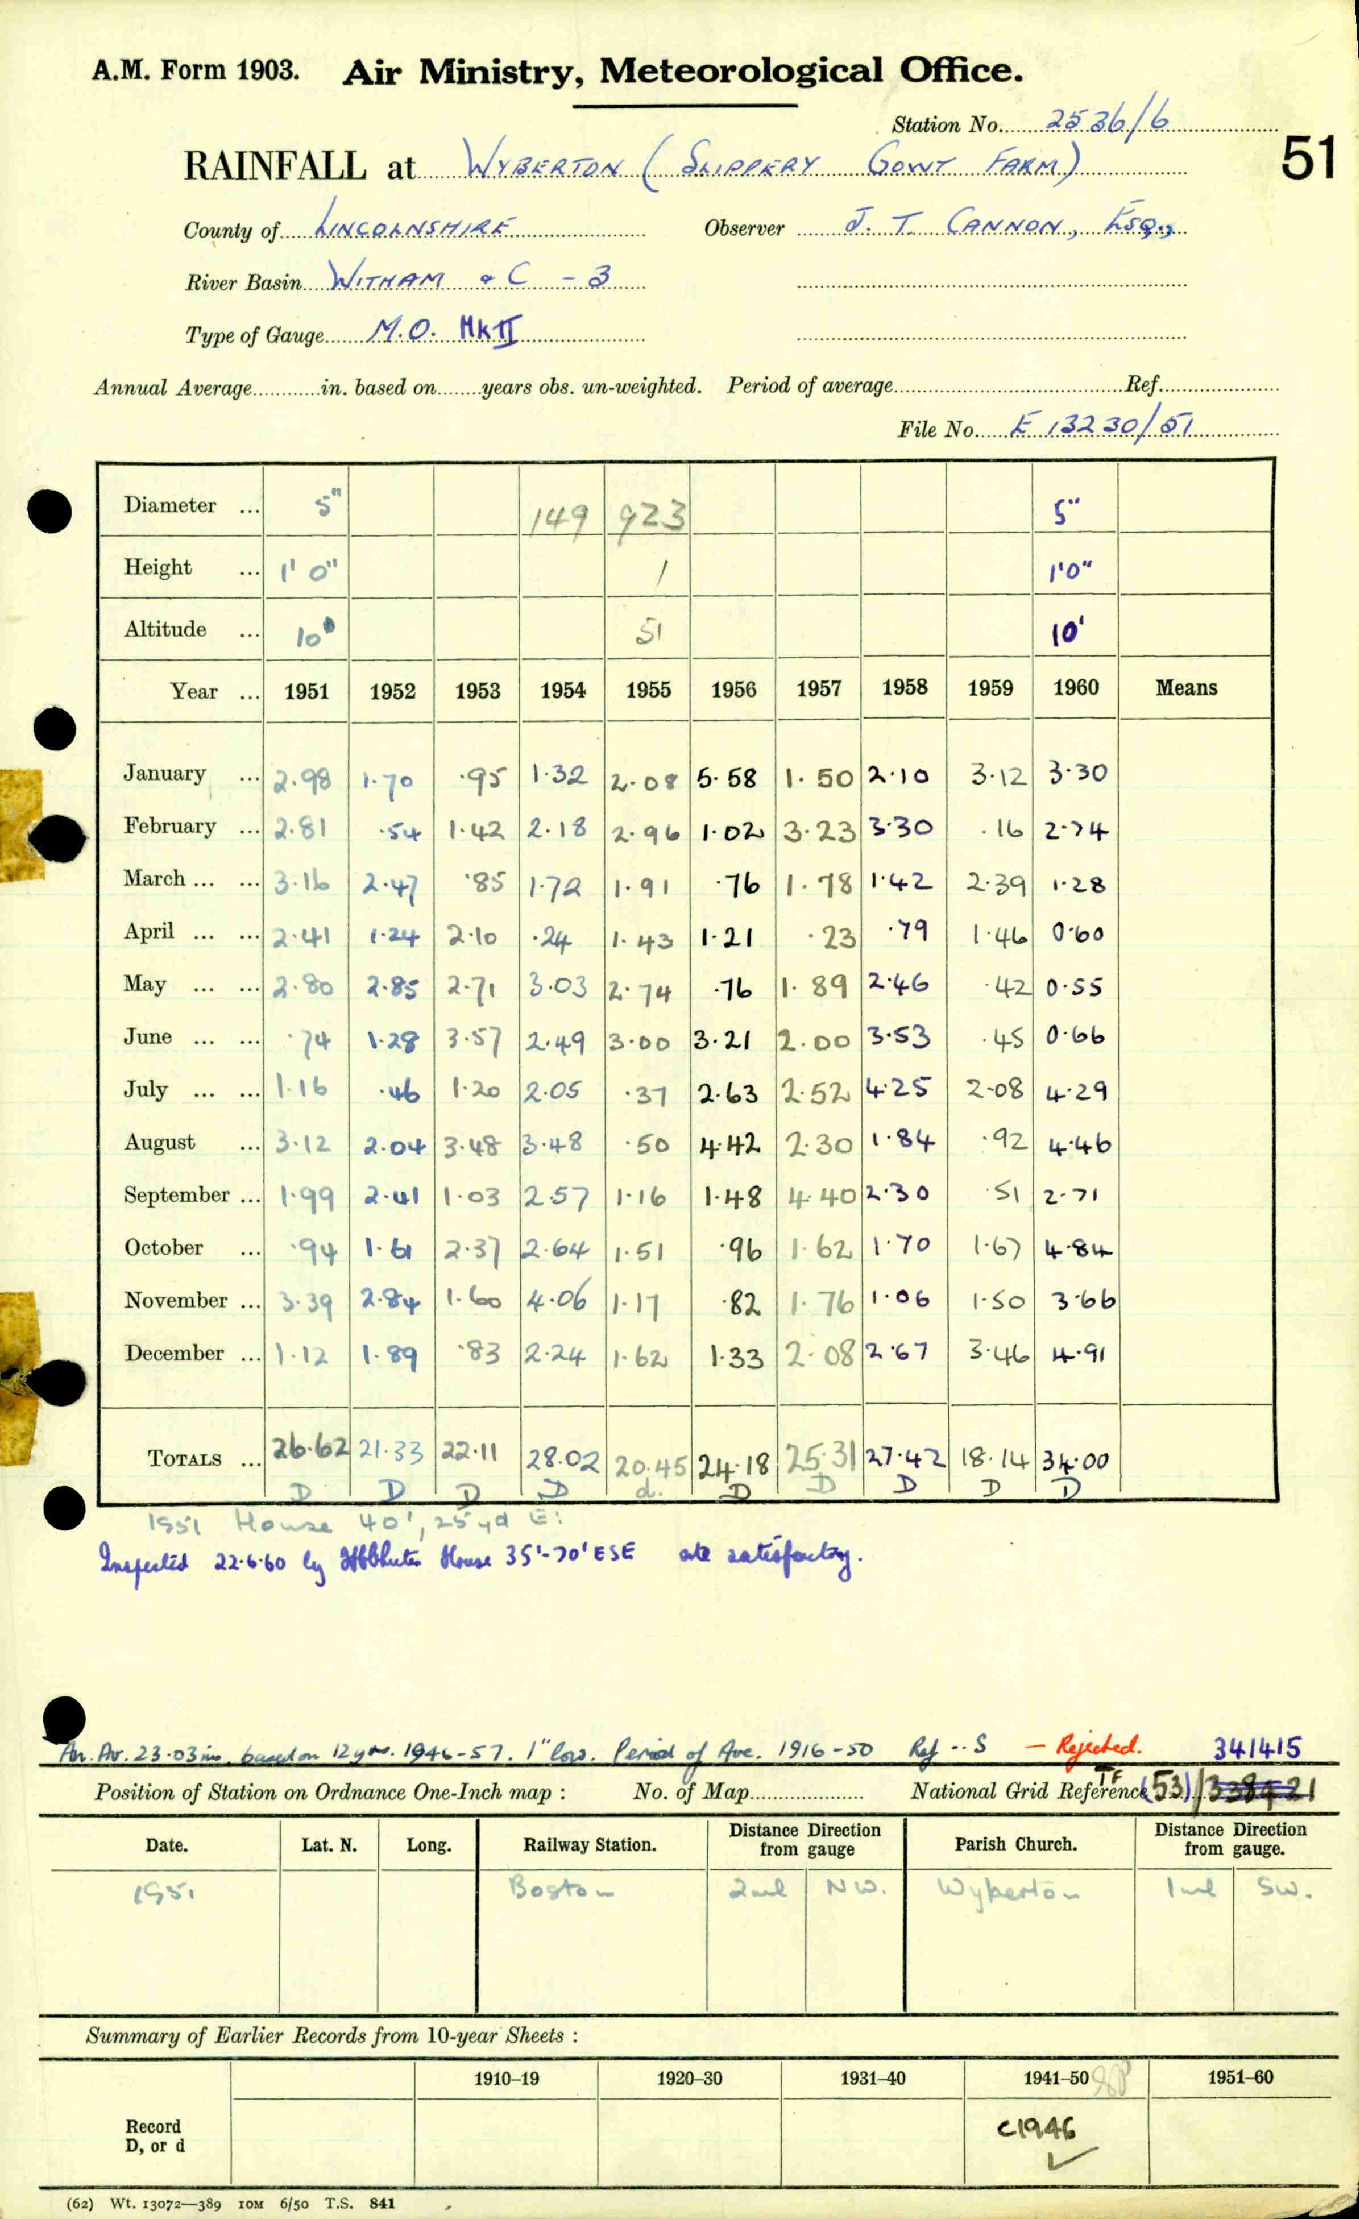 A.M. Form 1903. Air Ministry, Meteorological Office.
Station No. 2536/6
51
RAINFALL at WYBERTON (SLIPPERY GOWT FARM)
County of LINCOLNSHIRE Observer J. T. CANNON, ESQ.,
River Basin WITHAM & C - 3
Type of Gauge M.O. MkII
Annual Average in. based on years obs. un-weighted. Period of average Ref.
File No. E 13230/51
Diameter ... 5" 149 923 5"
Height ... 1' 0" / 1'0"
Altitude ... 10' 51 10'
Year ... 1951 1952 1953 1954 1955 1956 1957 1958 1959 1960 Means
January ... 2.98 1.70 .95 1.32 2.08 5.58 1.50 2.10 3.12 3.30
February ... 2.81 .54 1.42 2.18 2.96 1.02 3.23 3.30 .16 2.74
March ... ... 3.16 2.47 .85 1.72 1.91 .76 1.78 1.42 2.39 1.28
April ... ... 2.41 1.24 2.10 .24 1.43 1.21 .23 .79 1.46 0.60
May ... ... 2.80 2.85 2.71 3.03 2.74 .76 1.89 2.46 .42 0.55
June ... ... .74 1.28 3.57 2.49 3.00 3.21 2.00 3.53 .45 0.66
July ... ... 1.16 .46 1.20 2.05 .37 2.63 2.52 4.25 2.08 4.29
August ... 3.12 2.04 3.48 3.48 .50 4.42 2.30 1.84 .92 4.46
September ... 1.99 2.41 1.03 2.57 1.16 1.48 4.40 2.30 .51 2.71
October ... .94 1.61 2.37 2.64 1.51 .96 1.62 1.70 1.67 4.84
November ... 3.39 2.84 1.60 4.06 1.17 .82 1.76 1.06 1.50 3.66
December ... 1.12 1.89 .83 2.24 1.62 1.33 2.08 2.67 3.46 4.91
TOTALS ... 26.62 21.33 22.11 28.02 20.45 24.18 25.31 27.42 18.14 34.00
D D D D d. D D D D D
1951 House 40', 25yd E:
Inspected 22.6.60 by House 35'-70' ESE site satisfactory.
An. Av. 23.03 in. based on 12 yrs. 1946-57. 1" low. Period of Ave. 1916-50 Ref .. S - Rejected. 341415
Position of Station on Ordnance One-Inch map : No. of Map National Grid Reference TF (53)/338421
Date. Lat. N. Long. Railway Station. Distance Direction from gauge Parish Church. Distance Direction from gauge.
1951 Boston 2ml NW. Wyberton 1ml SW.
Summary of Earlier Records from 10-year Sheets :
1910–19 1920–30 1931–40 1941–50 1951–60
Record
D, or d
c1946 ✓
(62) Wt. 13072—389 10M 6/50 T.S. 841